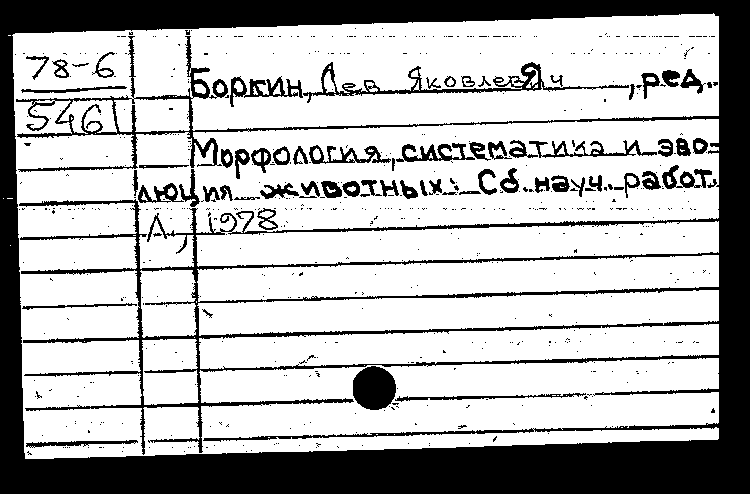 78-6
5461
Боркин, Лев Яковлевич, ред.
Морфология, систематика и эво=
люция животных: Сб. науч. работ.
Л., 1978